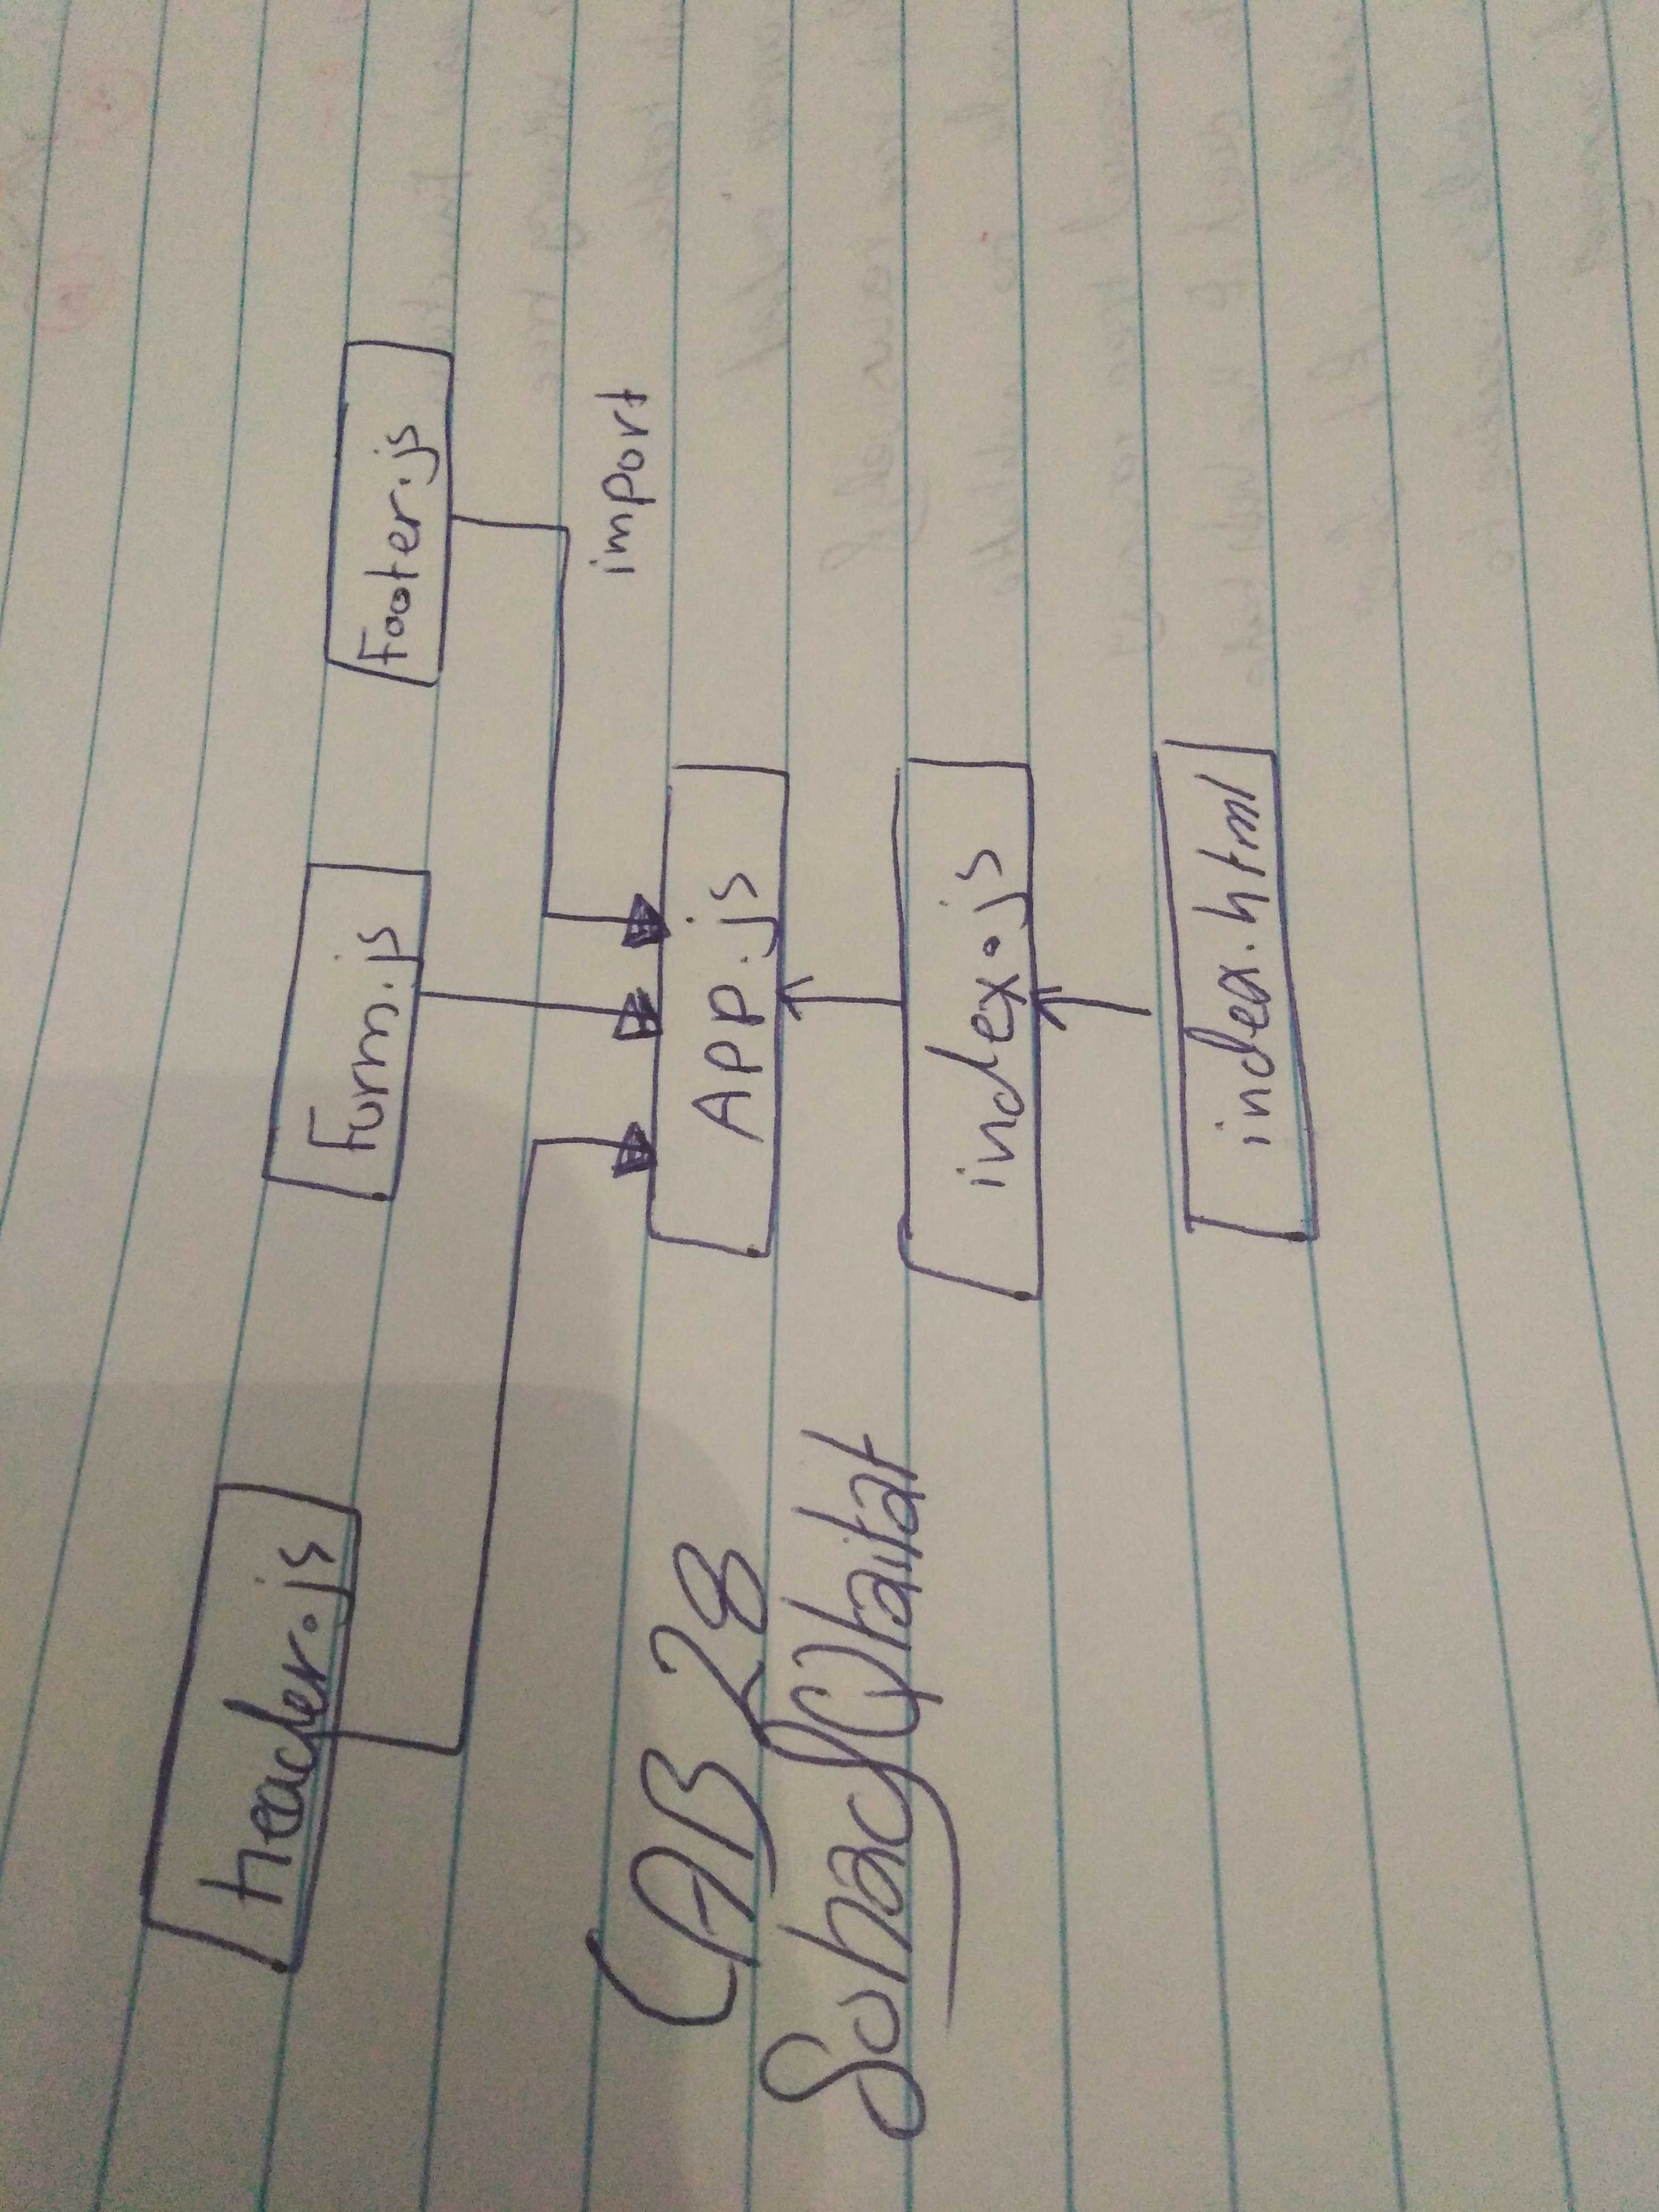 header.js
Form.js
Footer.js
import
APP.js
index.js
index.html
LAB 28